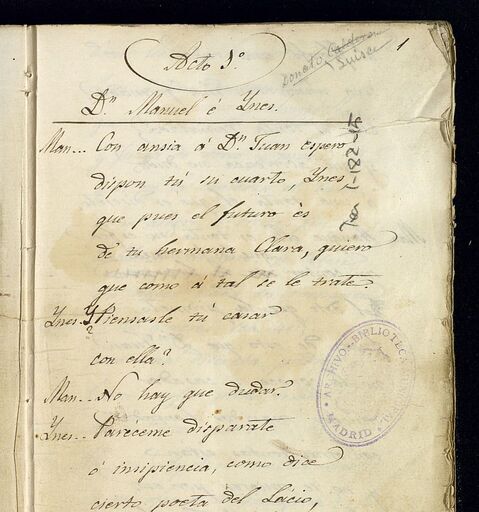 Acto 1º
1
Dn. Manuel é Ynes.
Man... Con ansia á Dn. Juan espero
dispon tú su cuarto, Ynes,
que pues el futuro ès
de tu hermana Clara, quiero
que como á tal se le trate
Ynes.. Piensasle tú casar
con ella?
Man... No hay que dudar.
Ynes.. Paréceme disparate
ó insipiencia, como dice
cierto poeta del Lacio,
Tea 1-182-14
ARCHIVO · BIBLIOTECA
MADRID